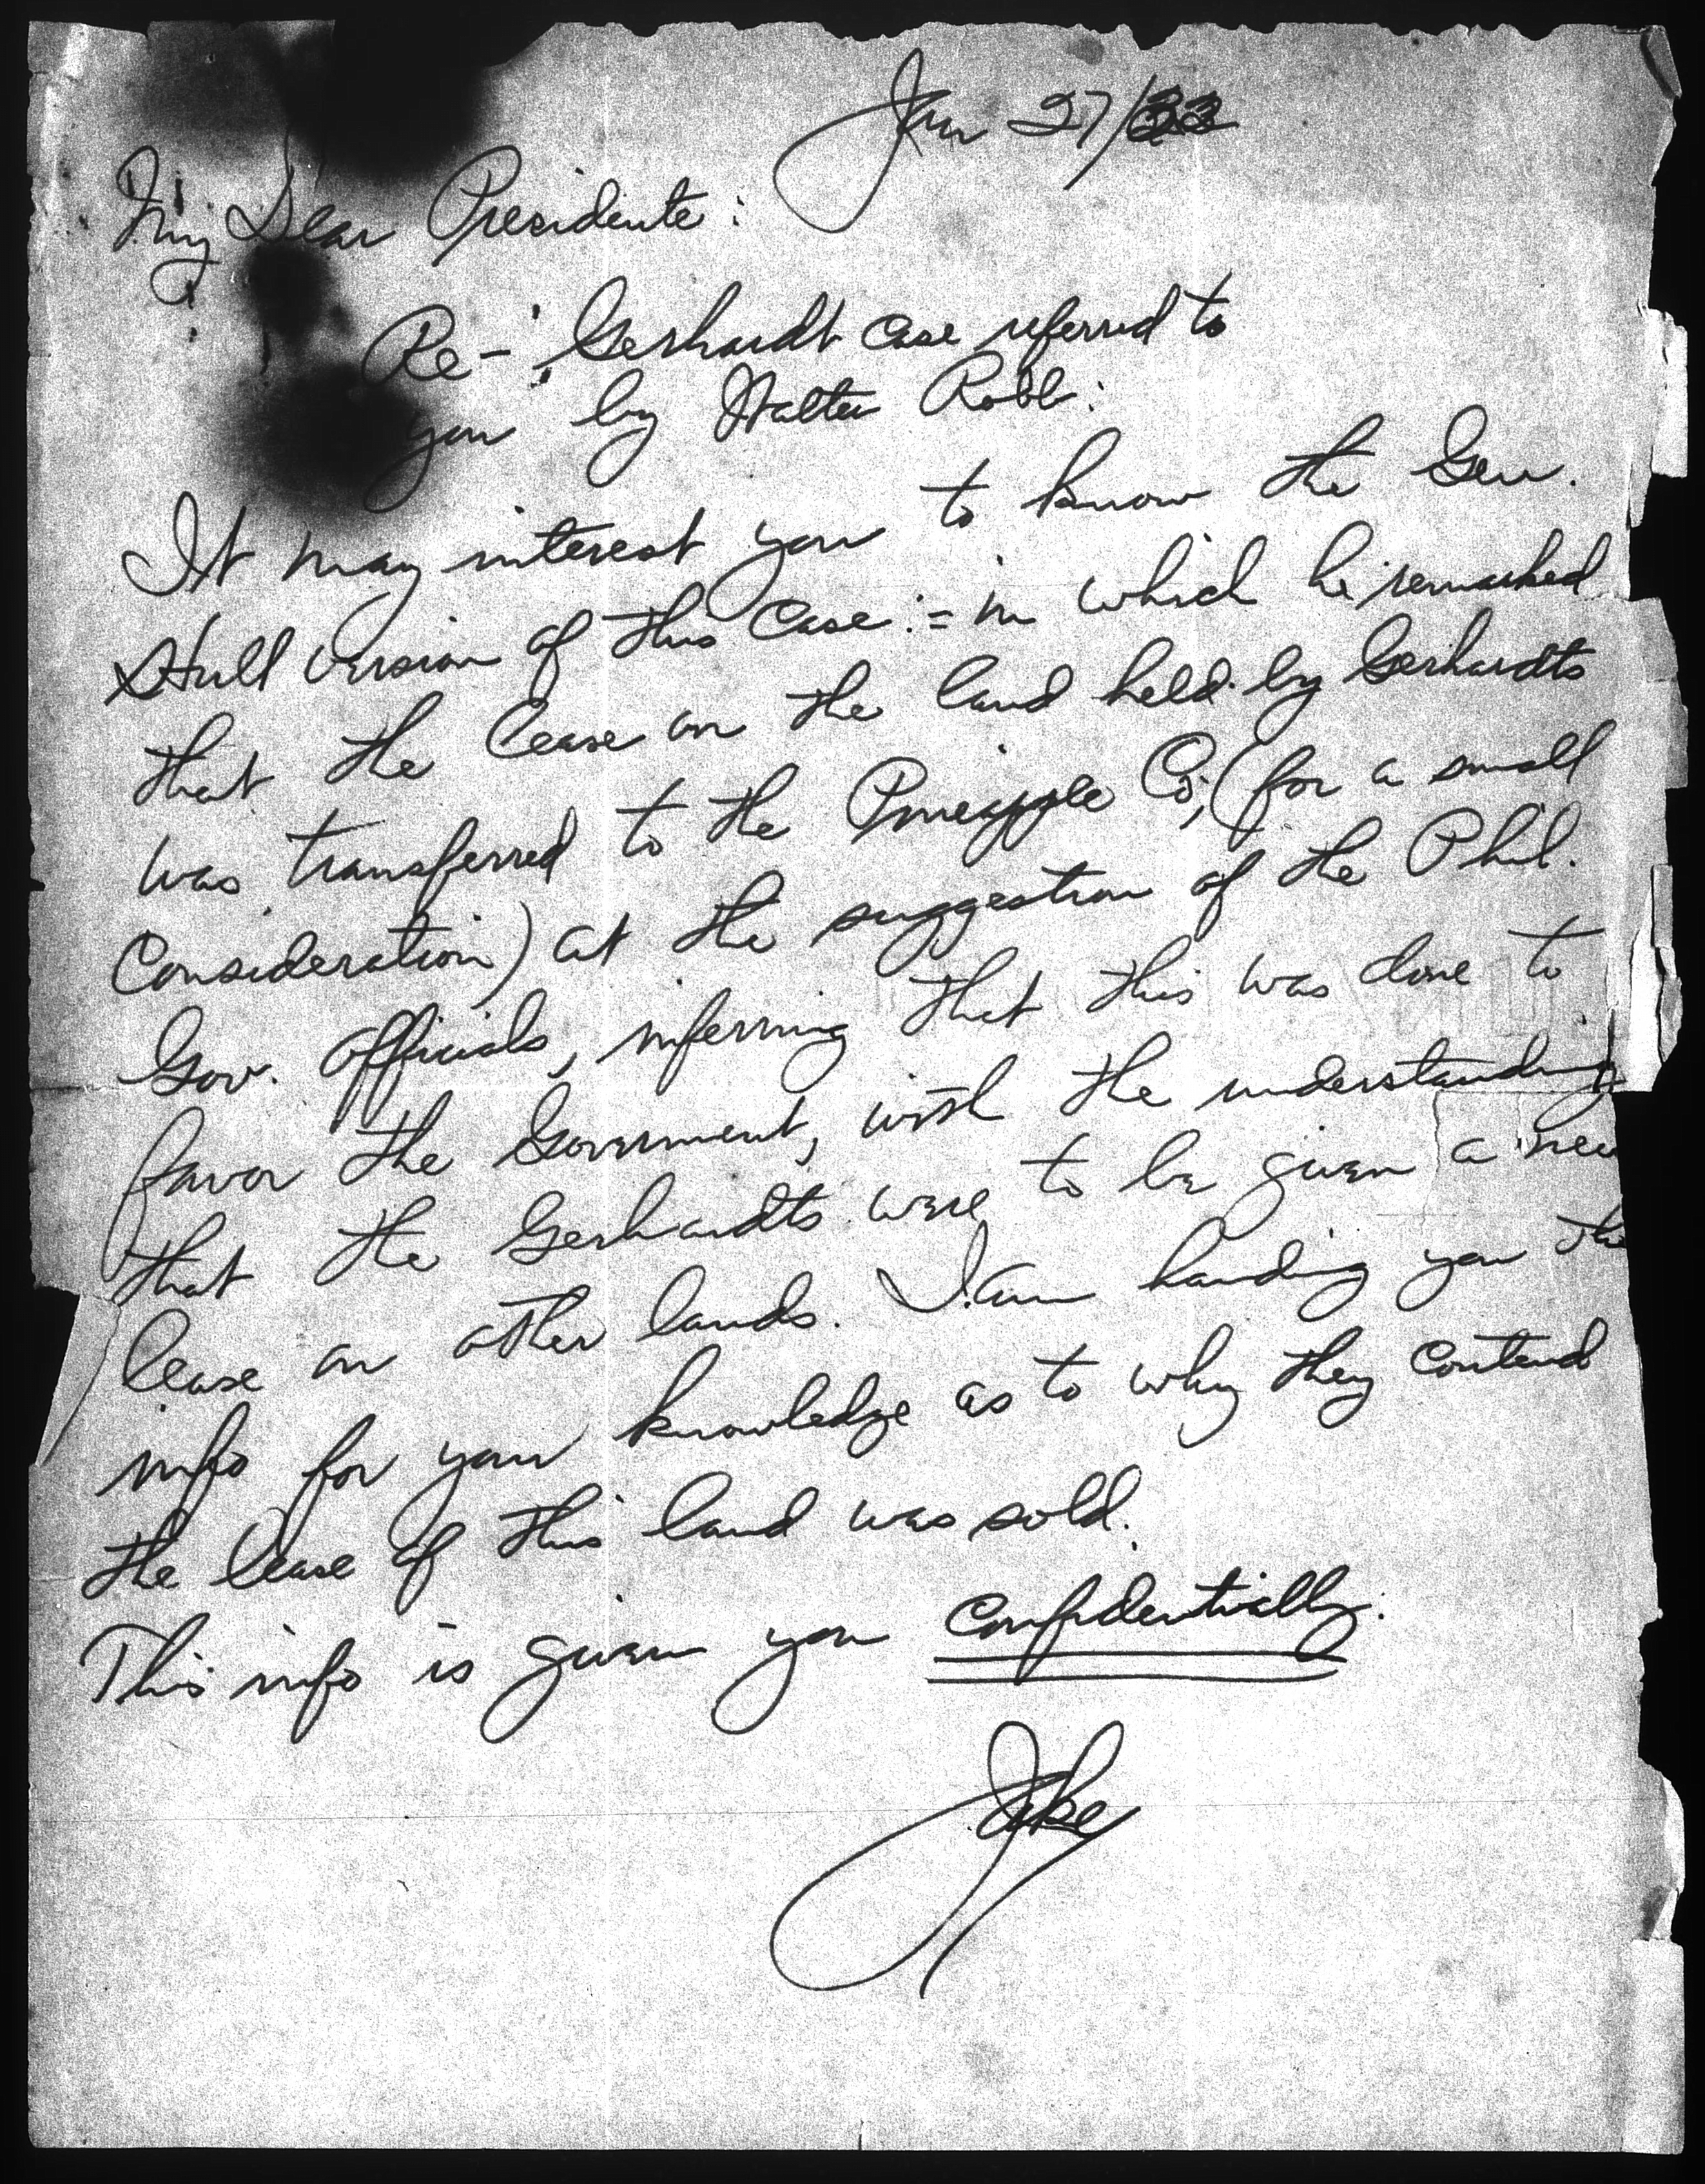 Jan 27/33
My Dear Presidente:
Re- Gerhardt case referred to
you by Walter Robb:
It may interest you to know the Gen.
Hull version of this case:= in which he remarked
that the lease on the land held by Gerhardts
was transferred to the Pineapple Co; (for a small
Consideration) at the suggestion of the Phil.
Gov. officials, inferring that this was done to
favor the Government, with the understanding
that the Gerhardts were to be given a new
lease on other lands. I am handing you the
info for your knowledge as to why they contend
the lease of this land was sold.
This info is given you Confidentially.
Jake